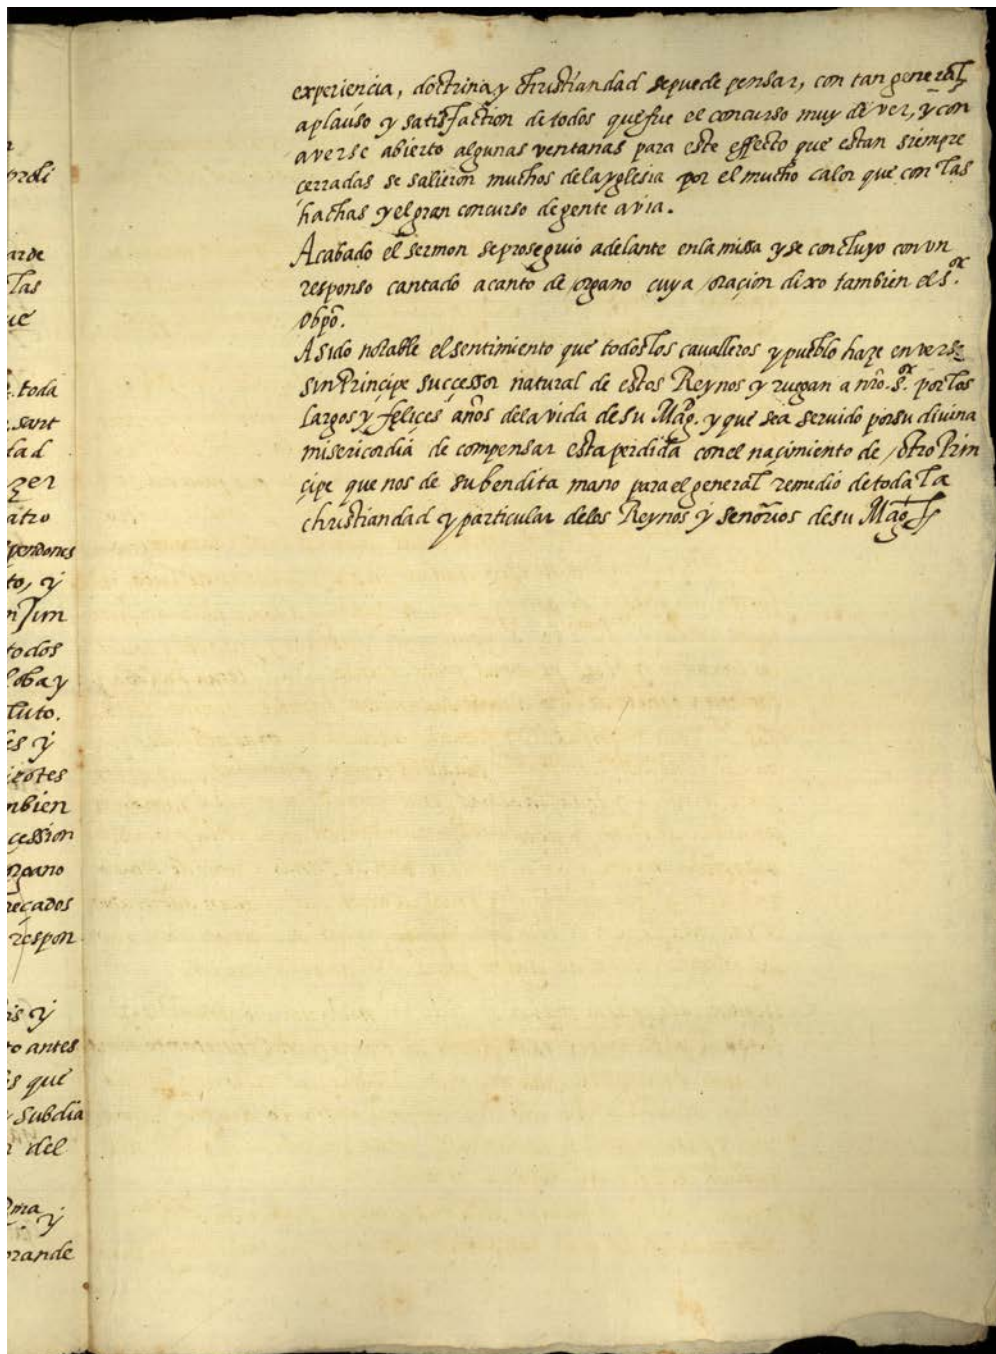 experiencia, doctrina y christiandad se puede pensar, con tan general
aplauso y satisfaction de todos que fue el concurso muy de ver, y con
averse abierto algunas ventanas para este effecto que estan siempre
çerradas se salieron muchos de la yglesia por el mucho calor que con las
hachas y el gran concurso de gente avia.
Acabado el sermon se prosiguio adelante en la missa y se concluyo con vn
responso cantado a canto de organo cuya oraçion dixo tambien el s.ᵒʳ
obpō.
A sido notable el sentimiento que todos los cavalleros y pueblo haze en verse
sin Prinçipe successor natural de estos Reynos y ruegan a nr̃o. s.ᵒʳ por los
largos y feliçes años de la vida de su Magᵈ. y que sea servido por su divina
misericordia de compensar esta perdida con el naçimiento de otro Prin
çipe que nos de su bendita mano para el general remedio de toda la
christiandad y particular de los Reynos y señorios de su Magᵈ
proli
arde
las
ue
toda
sant
dad
zer
atro
pendones
to, y
todos
loba y
luto.
es y
mbien
cession
organo
reçados
respon
is y
to antes
s que
y subdia
del
y
grande